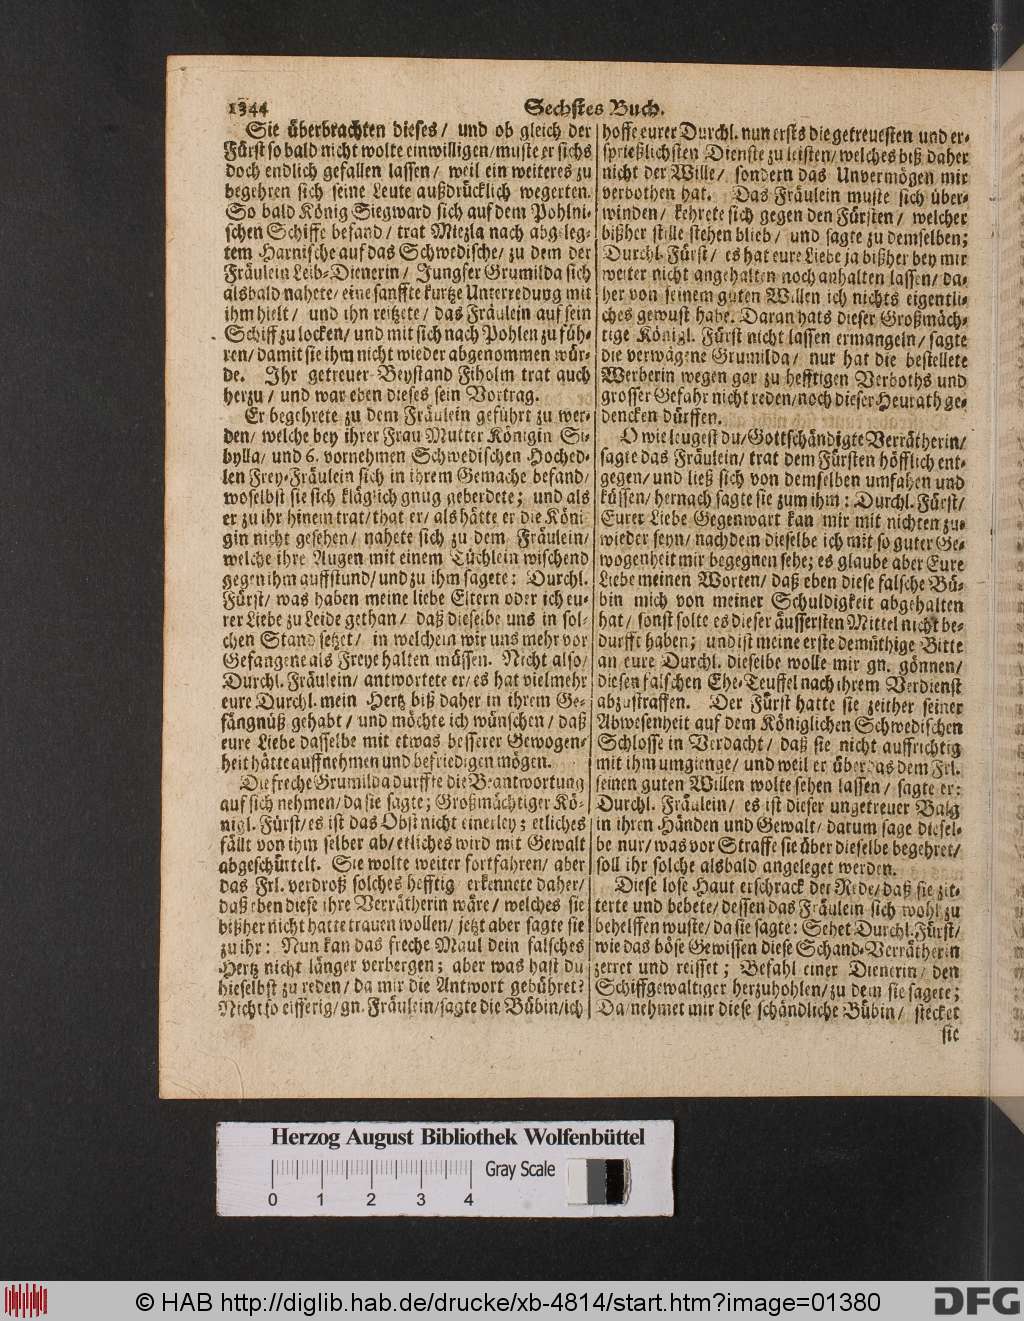 1344
Sechstes Buch.
Sie überbrachten dieses/ und ob gleich der
Fürst so bald nicht wolte einwilligen/ muste er sichs
doch endlich gefallen lassen/ weil ein weiteres zu
begehren sich seine Leute außdrücklich wegerten.
So bald König Siegward sich auf dem Pohlni-
schen Schiffe befand/ trat Miezla nach abgeleg-
tem Harnische auf das Schwedische/ zu dem der
Fräulein Leib-Dienerin/ Jungfer Grumilda sich
alsbald nahete/ eine sanffte kurtze Unterredung mit
ihm hielt/ und ihn reitzete/ das Fräulein auf sein
Schiff zu locken/ und mit sich nach Pohlen zu füh-
ren/ damit sie ihm nicht wieder abgenommen wür-
de. Ihr getreuer Beystand Fiholm trat auch
herzu/ und war eben dieses sein Vortrag.
Er begehrete zu dem Fräulein geführt zu wer-
den/ welche bey ihrer Frau Mutter Königin Si-
bylla/ und 6. vornehmen Schwedischen Hoched-
len Frey-Fräulein sich in ihrem Gemache befand/
woselbst sie sich kläglich gnug geberdete; und als
er zu ihr hinein trat/ that er/ als hätte er die Köni
gin nicht gesehen/ nahete sich zu dem Fräulein/
welche ihre Augen mit einem Tüchlein wischend
gegen ihm auffstund/ und zu ihm sagete: Durchl.
Fürst/ was haben meine liebe Eltern oder ich eu-
rer Liebe zu Leide gethan/ daß dieselbe uns in sol-
chen Stand setzet/ in welchem wir uns mehr vor
Gefangene als Freye halten müssen. Nicht also/
Durchl. Fräulein/ antwortete er/ es hat vielmehr
eure Durchl. mein Hertz biß daher in ihrem Ge-
fängnüß gehabt/ und möchte ich wünschen/ daß
eure Liebe dasselbe mit etwas besserer Gewogen-
heit hätte auffnehmen und befriedigen mögen.
Die freche Grumilda durffte die Beantwortung
auf sich nehmen/ da sie sagte; Großmächtiger Kö-
nigl. Fürst/ es ist das Obst nicht einerley; etliches
fällt von ihm selber ab/ etliches wird mit Gewalt
abgeschüttelt. Sie wolte weiter fortfahren/ aber
das Frl. verdroß solches hefftig erkennete daher/
daß eben diese ihre Verrätherin wäre/ welches sie
bißher nicht hatte trauen wollen/ jetzt aber sagte sie
zu ihr: Nun kan das freche Maul dein falsches
Hertz nicht länger verbergen; aber was hast du
hieselbst zu reden/ da mir die Antwort gebühret?
Nicht so eifferig/ gn. Fräulein/ sagte die Bübin/ ich
hoffe eurer Durchl. nun ersts die getreuesten und er-
sprießlichsten Dienste zu leisten/ welches biß daher
nicht der Wille/ sondern das Unvermögen mir
verbothen hat. Das Fräulein muste sich über-
winden/ kehrete sich gegen den Fürsten/ welcher
bißher stille stehen blieb/ und sagte zu demselben;
Durchl. Fürst/ es hat eure Liebe ja bißher bey mir
weiter nicht angehalten noch anhalten lassen/ da-
her von seinem guten Willen ich nichts eigentli-
ches gewust habe. Daran hats dieser Großmäch-
tige Königl. Fürst nicht lassen ermangeln/ sagte
die verwägene Grumilda/ nur hat die bestellete
Werberin wegen gar zu hefftigen Verboths und
grosser Gefahr nicht reden/ noch dieser Heurath ge-
dencken dürffen.
O wie leugest du/ Gottschändigte Verrätherin/
sagte das Fräulein/ trat dem Fürsten höfflich ent-
gegen/ und ließ sich von demselben umfahen und
küssen/ hernach sagte sie zum ihm: Durchl. Fürst/
Eurer Liebe Gegenwart kan mir mit nichten zu-
wieder seyn/ nachdem dieselbe ich mit so guter Ge-
wogenheit mir begegnen sehe; es glaube aber Eure
Liebe meinen Worten/ daß eben diese falsche Bü-
bin mich von meiner Schuldigkeit abgehalten
hat/ sonst solte es dieser äussersten Mittel nicht be-
durfft haben; und ist meine erste demüthige Bitte
an eure Durchl. dieselbe wolle mir gn. gönnen/
diesen falschen Ehe-Teuffel nach ihrem Verdienst
abzustraffen. Der Fürst hatte sie zeither seiner
Abwesenheit auf dem Königlichen Schwedischen
Schlosse in Verdacht/ daß sie nicht auffrichtig
mit ihm umgienge/ und weil er über das dem Frl.
seinen guten Willen wolte sehen lassen/ sagte er:
Durchl. Fräulein/ es ist dieser ungetreuer Balg
in ihren Händen und Gewalt/ darum sage diesel-
be nur/ was vor Straffe sie über dieselbe begehret/
soll ihr solche alsbald angeleget werden.
Diese lose Haut erschrack der Rede/ daß sie zit-
terte und bebete/ dessen das Fräulein sich wohl zu
behelffen wuste/ da sie sagte: Sehet Durchl. Fürst/
wie das böse Gewissen diese Schand-Verrätherin
zerret und reisset; Befahl einer Dienerin/ den
Schiffgewaltiger herzuhohlen/ zu dem sie sagete;
Da/ nehmet mir diese schändliche Bübin/ stecket
sie
Herzog August Bibliothek Wolfenbüttel
Gray Scale
0 1 2 3 4
© HAB http://diglib.hab.de/drucke/xb-4814/start.htm?image=01380
DFG